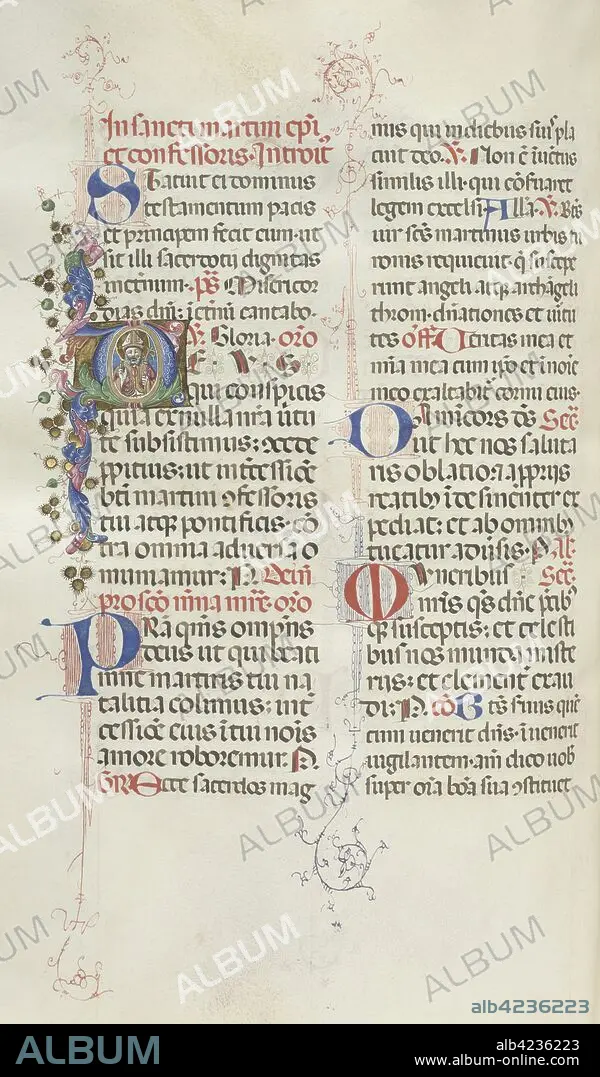 In sancti martini epi
et confessoris. Introit
Statuit ei dominus
testamentum pacis
et principem fecit eum. ut
sit illi sacerdocii dignitas
in eternum. ps Misericor
dias dni: ieternu cantabo.
V. Gloria. oro
DEVS
qui conspicis
quia ex nulla nra uirtu
te subsistimus: cocede
ppitius: ut intcessioe
bti martini cfessoris
tui atqz pontificis. co
tra omnia aduersa
muniamur: P.
pro sco mna mre. oro
PRa qms omps
deus ut qui beati
mne martiris tui na
talitia colimus: int
cessioe eius i tui nois
amore roboremur. P.
GR Ecce sacerdos mag
nus qui in diebus suis pla
cuit deo. V. Non e iuetus
similis illi. qui coseruaret
legem excelsi. Alla. V. Bts
uir scs martinus urbis tu
ronis requieuit. que suscepe
runt angeli atqz archageli
throni. dnationes et uirtu
tes off Ueritas mea et
mia mea cum ipo et in noie
meo exaltabit cornu eius.
Da misicors ds Sec.
ut hec nos saluta
ris oblatio. et a pprijs
reatibz idesinenter ex
pediat: et ab omnibz
tueatur aduisis. P. Al.
Muneribus Sec.
nris qs dne pcibz
qz susceptis: et celesti
bus nos munda miste
rijs: et clementer exau
di: P. co Bts seruus que
cum uenerit dns. iuenerit
uigilantem. am dico uob
super oia boa sua cstituet
ALBUM
alb4236223
ALBUM
alb4236223
www.album-online.com